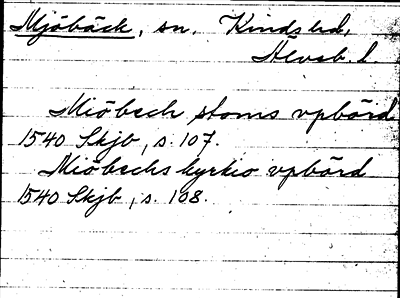 Mjöbäck, sn. Kinds hd,
Älvsb. l.
Miöbech stoms vpbörd
1540 Skjb, s. 107.
Miöbechs kyrkio vpbörd
1540 Skjb, s. 108.